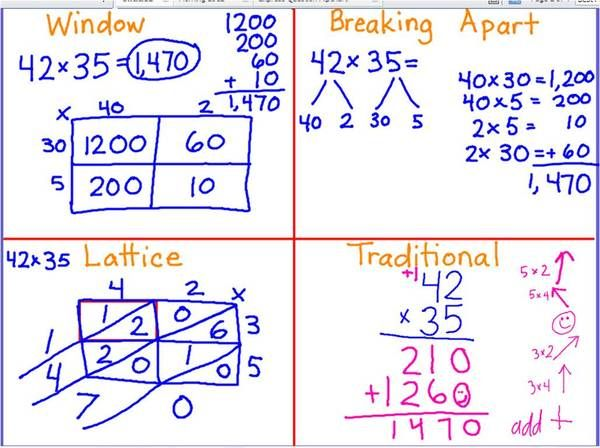 Window
42×35=1,470
1200
200
60
+ 10
1,470
× 40 2
30 1200 60
5 200 10
Breaking Apart
42×35=
40 2 30 5
40×30=1,200
40×5= 200
2×5= 10
2×30=+60
1,470
42×35 Lattice
4 2 ×
1 2 0 6 3
2 0 1 0 5
1
4
7 0
Traditional
+1
42
×35
210
+1260
1470
5×2
5×4
3×2
3×4
add +